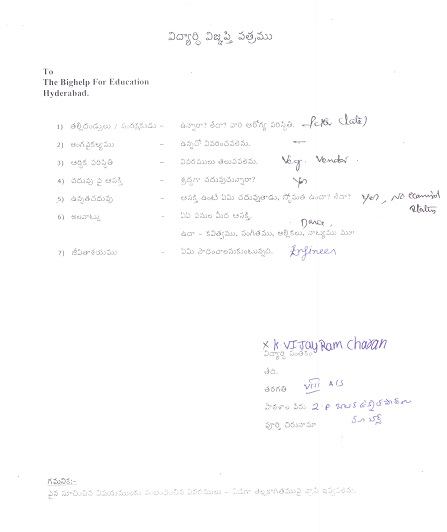 విద్యార్థి విజ్ఞప్తి పత్రము
To
The Bighelp For Education
Hyderabad.
1) తల్లిదండ్రులు / సంరక్షకుడు – ఉన్నారా? లేదా? వారి ఆరోగ్య పరిస్థితి. (late)
2) అంగవైకల్యము – ఉన్నచో వివరించవలెను. —
3) ఆర్థిక పరిస్థితి – వివరములు తెలుపవలెను. Veg. Vendor.
4) చదువు పై ఆసక్తి – శ్రద్ధగా చదువుచున్నారా? Yes
5) ఉన్నతచదువు – ఆసక్తి ఉంటే ఏమి చదువుతాడు, స్తోమత ఉందా? లేదా? Yes, No
status
6) అలవాట్లు – ఏమి పనుల మీద ఆసక్తి. Dance,
ఉదా – కవిత్వము, సంగీతము, అల్లికలు, నాట్యము మొ॥
7) జీవితాశయము – ఏమి సాధించాలనుకుంటున్నది. Engineer
x K. VIJAY Ram Charan
విద్యార్థి సంతకం
తేది.
తరగతి VIII A/S
పాఠశాల పేరు
పూర్తి చిరునామా
గమనిక:-
పైన సూచించిన విషయములను